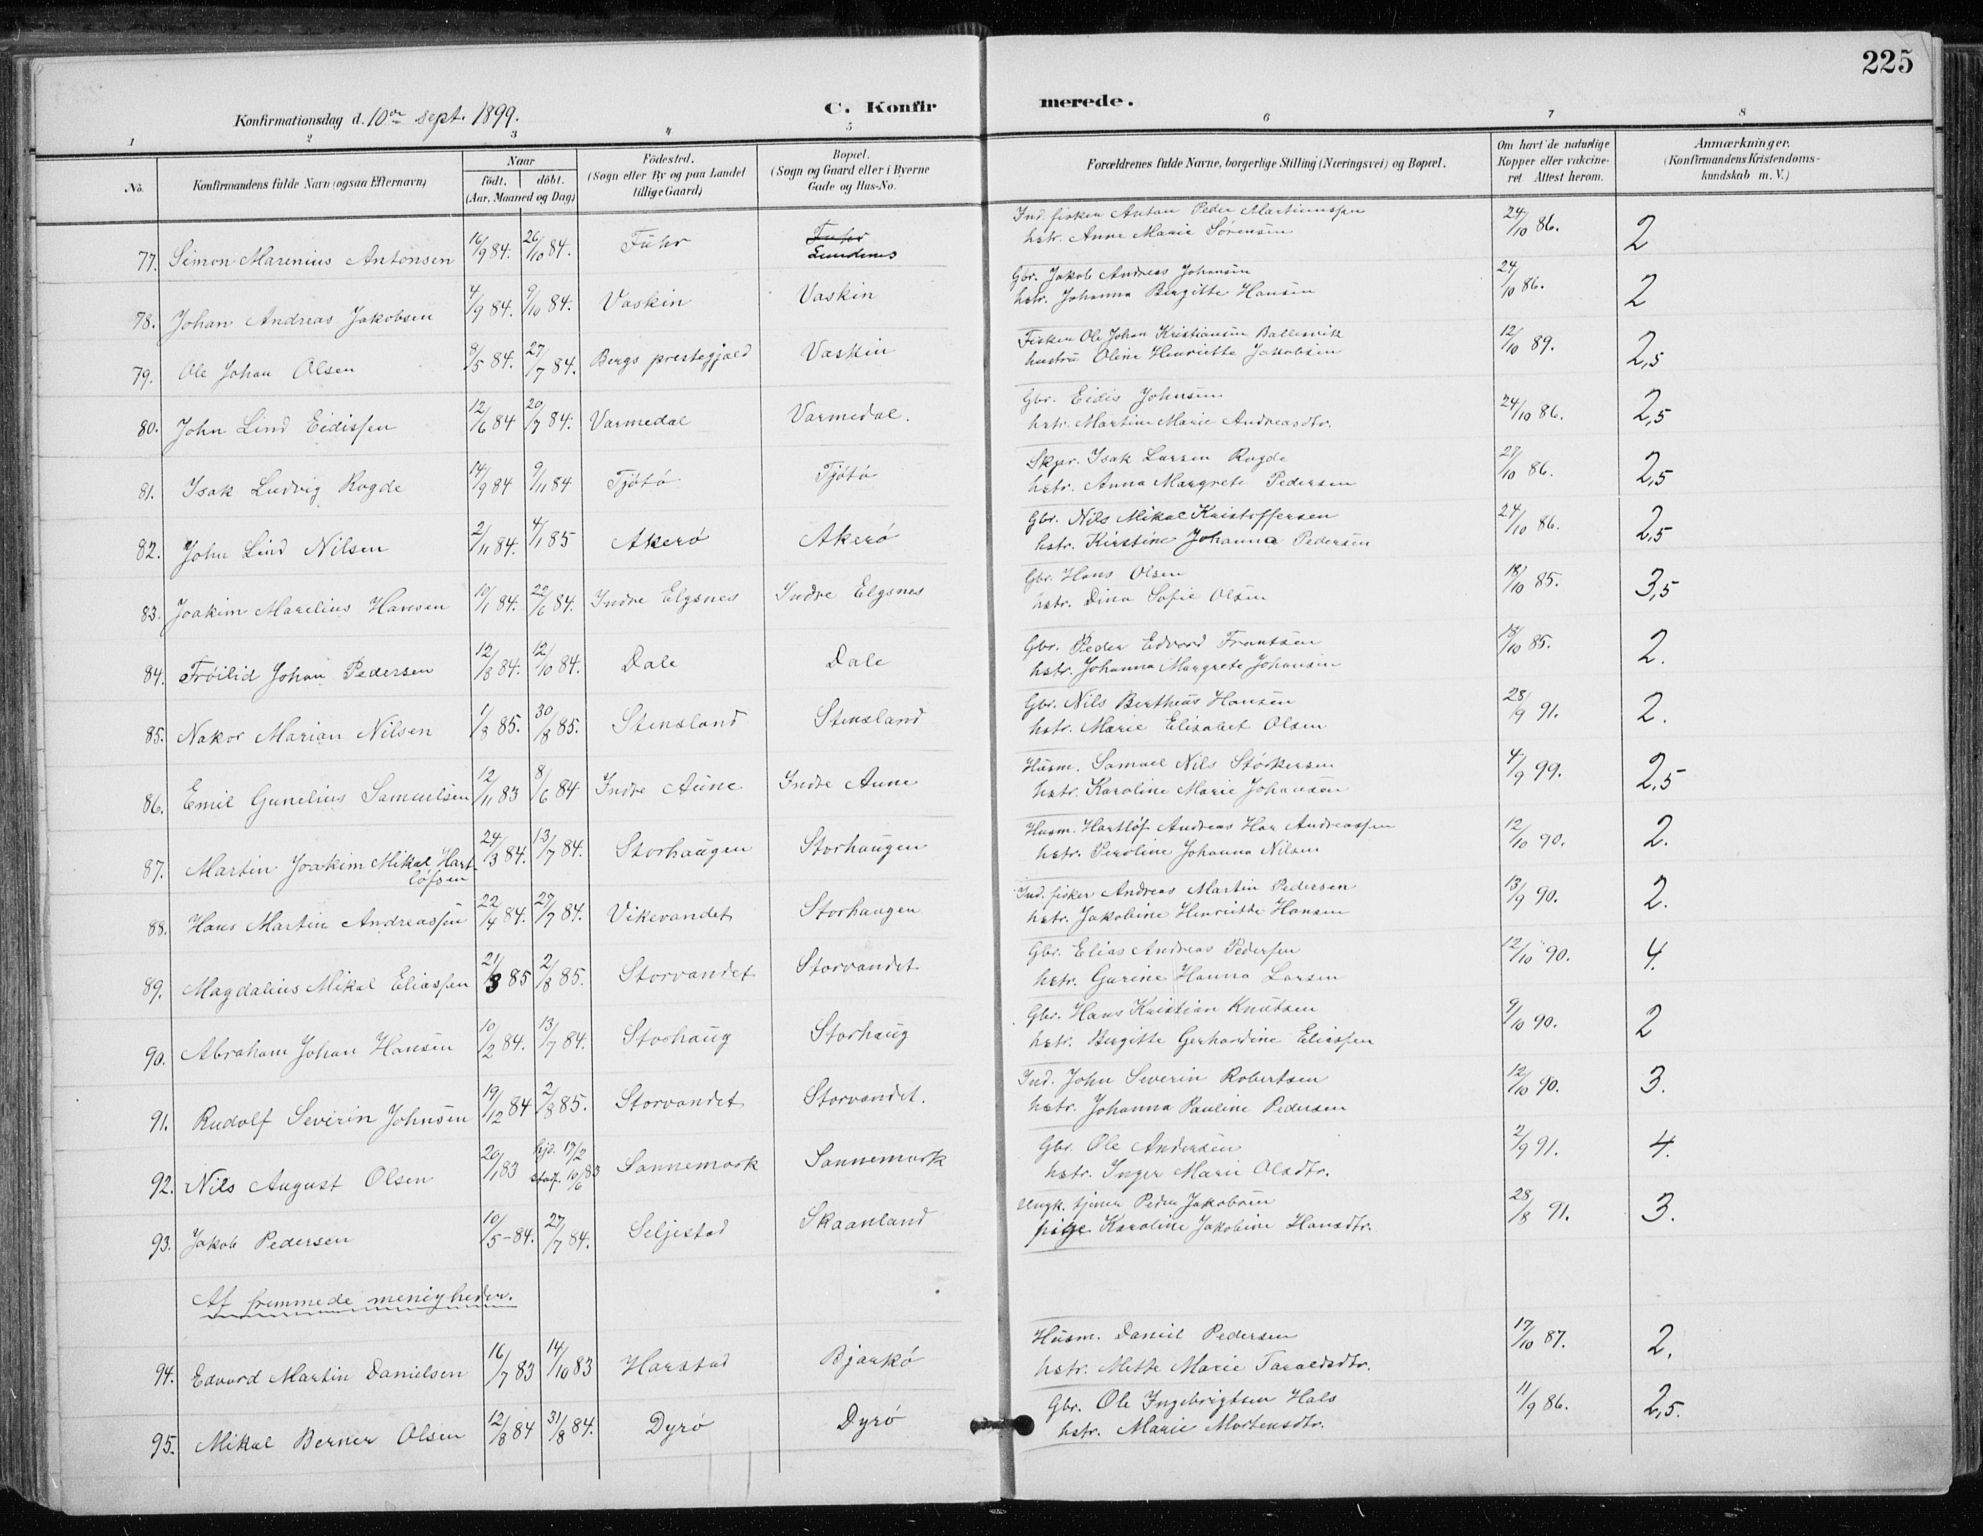 225
C. Konfirmerede.
Konfirmationsdag d. 10de sept. 1899.
1 2 3 4 5 6 7 8
No. Konfirmandens fulde Navn (ogsaa Efternavn) Naar født. døbt. (Aar, Maaned og Dag) Fødested. (Sogn eller By og paa Landet tillige Gaard) Bopæl. (Sogn og Gaard eller i Byerne Gade og Hus-No. Forældrenes fulde Navne, borgerlige Stilling (Næringsvei) og Bopæl. Om havt de naturlige Kopper eller vakcineret. Attest herom. Anmærkninger. (Konfirmandens Kristendomskundskab m. V.)
77. Simon Marenius Antonsen 16/9 84. 26/10 84. Fuhr Fuhr Lundenes Ind. fisker Anton Peder Martinussen hstr. Anne Marie Sørensen 24/10 86. 2
78. Johan Andreas Jakobsen 4/9 84. 9/10 84. Vaskin Vaskin Gbr. Jakob Andreas Johansen hstr. Johanna Birgitte Hansen 24/10 86. 2
79. Ole Johan Olsen 8/5 84. 27/7 84. Bergs prestegjæld Vaskin Fisker Ole Johan Kristiansen Ballesvik hustru Oline Henriette Jakobsen 12/10 89. 2,5
80. John Lind Eidissen 12/6 84 20/7 84. Varmedal Varmedal. Gbr. Eidis Johnsen hstr. Martine Marie Andreasdtr. 24/10 86. 2,5
81. Isak Ludvig Rogde 14/9 84 9/11 84 Tjøtø Tjøtø Skpr. Isak Larsen Rogde hstr. Anna Margrete Pedersen 27/10 86. 2,5
82. John Lind Nilsen 2/11 84. 4/1 85 Akerø Akerø Gbr. Nils Mikal Kristoffersen hstr. Kirstine Johanna Pedersen 24/10 86. 2,5
83. Joakim Marelius Hansen 10/1 84. 22/6 84. Indre Elgsnes Indre Elgsnes Gbr. Hans Olsen hstr. Dina Sofie Olsen 18/10 85. 3,5
84. Frøilid Johan Pedersen 12/8 84. 12/10 84. Dale Dale Gbr. Peder Edvard Frantsen hstr. Johanna Margrete Johansen 18/10 85. 2.
85. Nakor Marian Nilsen 1/3 85. 30/8 85. Stensland Stensland Gbr. Nils Bertheus Hansen hstr. Marie Elisabet Olsen 28/9 91. 2.
86. Emil Gunelius Samuelsen 12/11 83 8/6 84 Indre Aune Indre Aune Husm. Samuel Nils Størkersen hstr. Karoline Marie Johansen 4/9 99. 2,5
87. Martin Joakim Mikal Hartløfsen 24/3 84. 13/7 84. Storhaugen Storhaugen Husm. Hartløf Andreas Har Andreassen hstr. Peroline Johanna Nilsen 12/10 90. 2.
88. Hans Martin Andreassen 22/4 84. 27/7 84. Vikevandet Storhaugen Ind. fisker Andreas Martin Pedersen hstr. Jakobine Henriette Hansen 13/9 90. 2.
89. Magdalius Mikal Eliassen 21/3 85 2/8 85. Storvandet Storvandet Gbr. Elias Andreas Pedersen hstr. Gurine Hanna Larsen 12/10 90. 4.
90. Abraham Johan Hansen 10/2 84. 13/7 84. Storhaug Storhaug Gbr. Hans Kristian Knutsen hstr. Birgitte Gerhardine Eliassen 9/10 90. 2
91. Rudolf Severin Johnsen 19/12 84 2/8 85. Storvandet Storvandet. Ind. John Severin Robertsen hstr. Johanna Pauline Pedersen 12/10 90. 3.
92. Nils August Olsen 20/1 83 hjd. 17/2 stadf. 10/6 83 Sannemark Sannemark Gbr. Ole Andersen hstr. Inger Marie Olsdtr. 2/9 91. 4.
93. Jakob Pedersen 10/5 - 84. 27/7 84. Seljestad Skaanland Ungk. tjener Peder Jakobsen pige Karoline Jakobine Hansdtr. 28/8 91. 3.
Af fremmede menigheder.
94. Edvard Martin Danielsen 16/7 83 14/10 83 Harstad Bjarkø Husm. Daniel Pedersen hstr. Mette Marie Taraldsdtr. 17/10 87. 2.
95. Mikal Berner Olsen 12/8 84 31/8 84. Dyrø Dyrø Gbr. Ole Ingebrigtsen Hals hstr. Marie Mortensdtr. 11/9 86. 2,5.